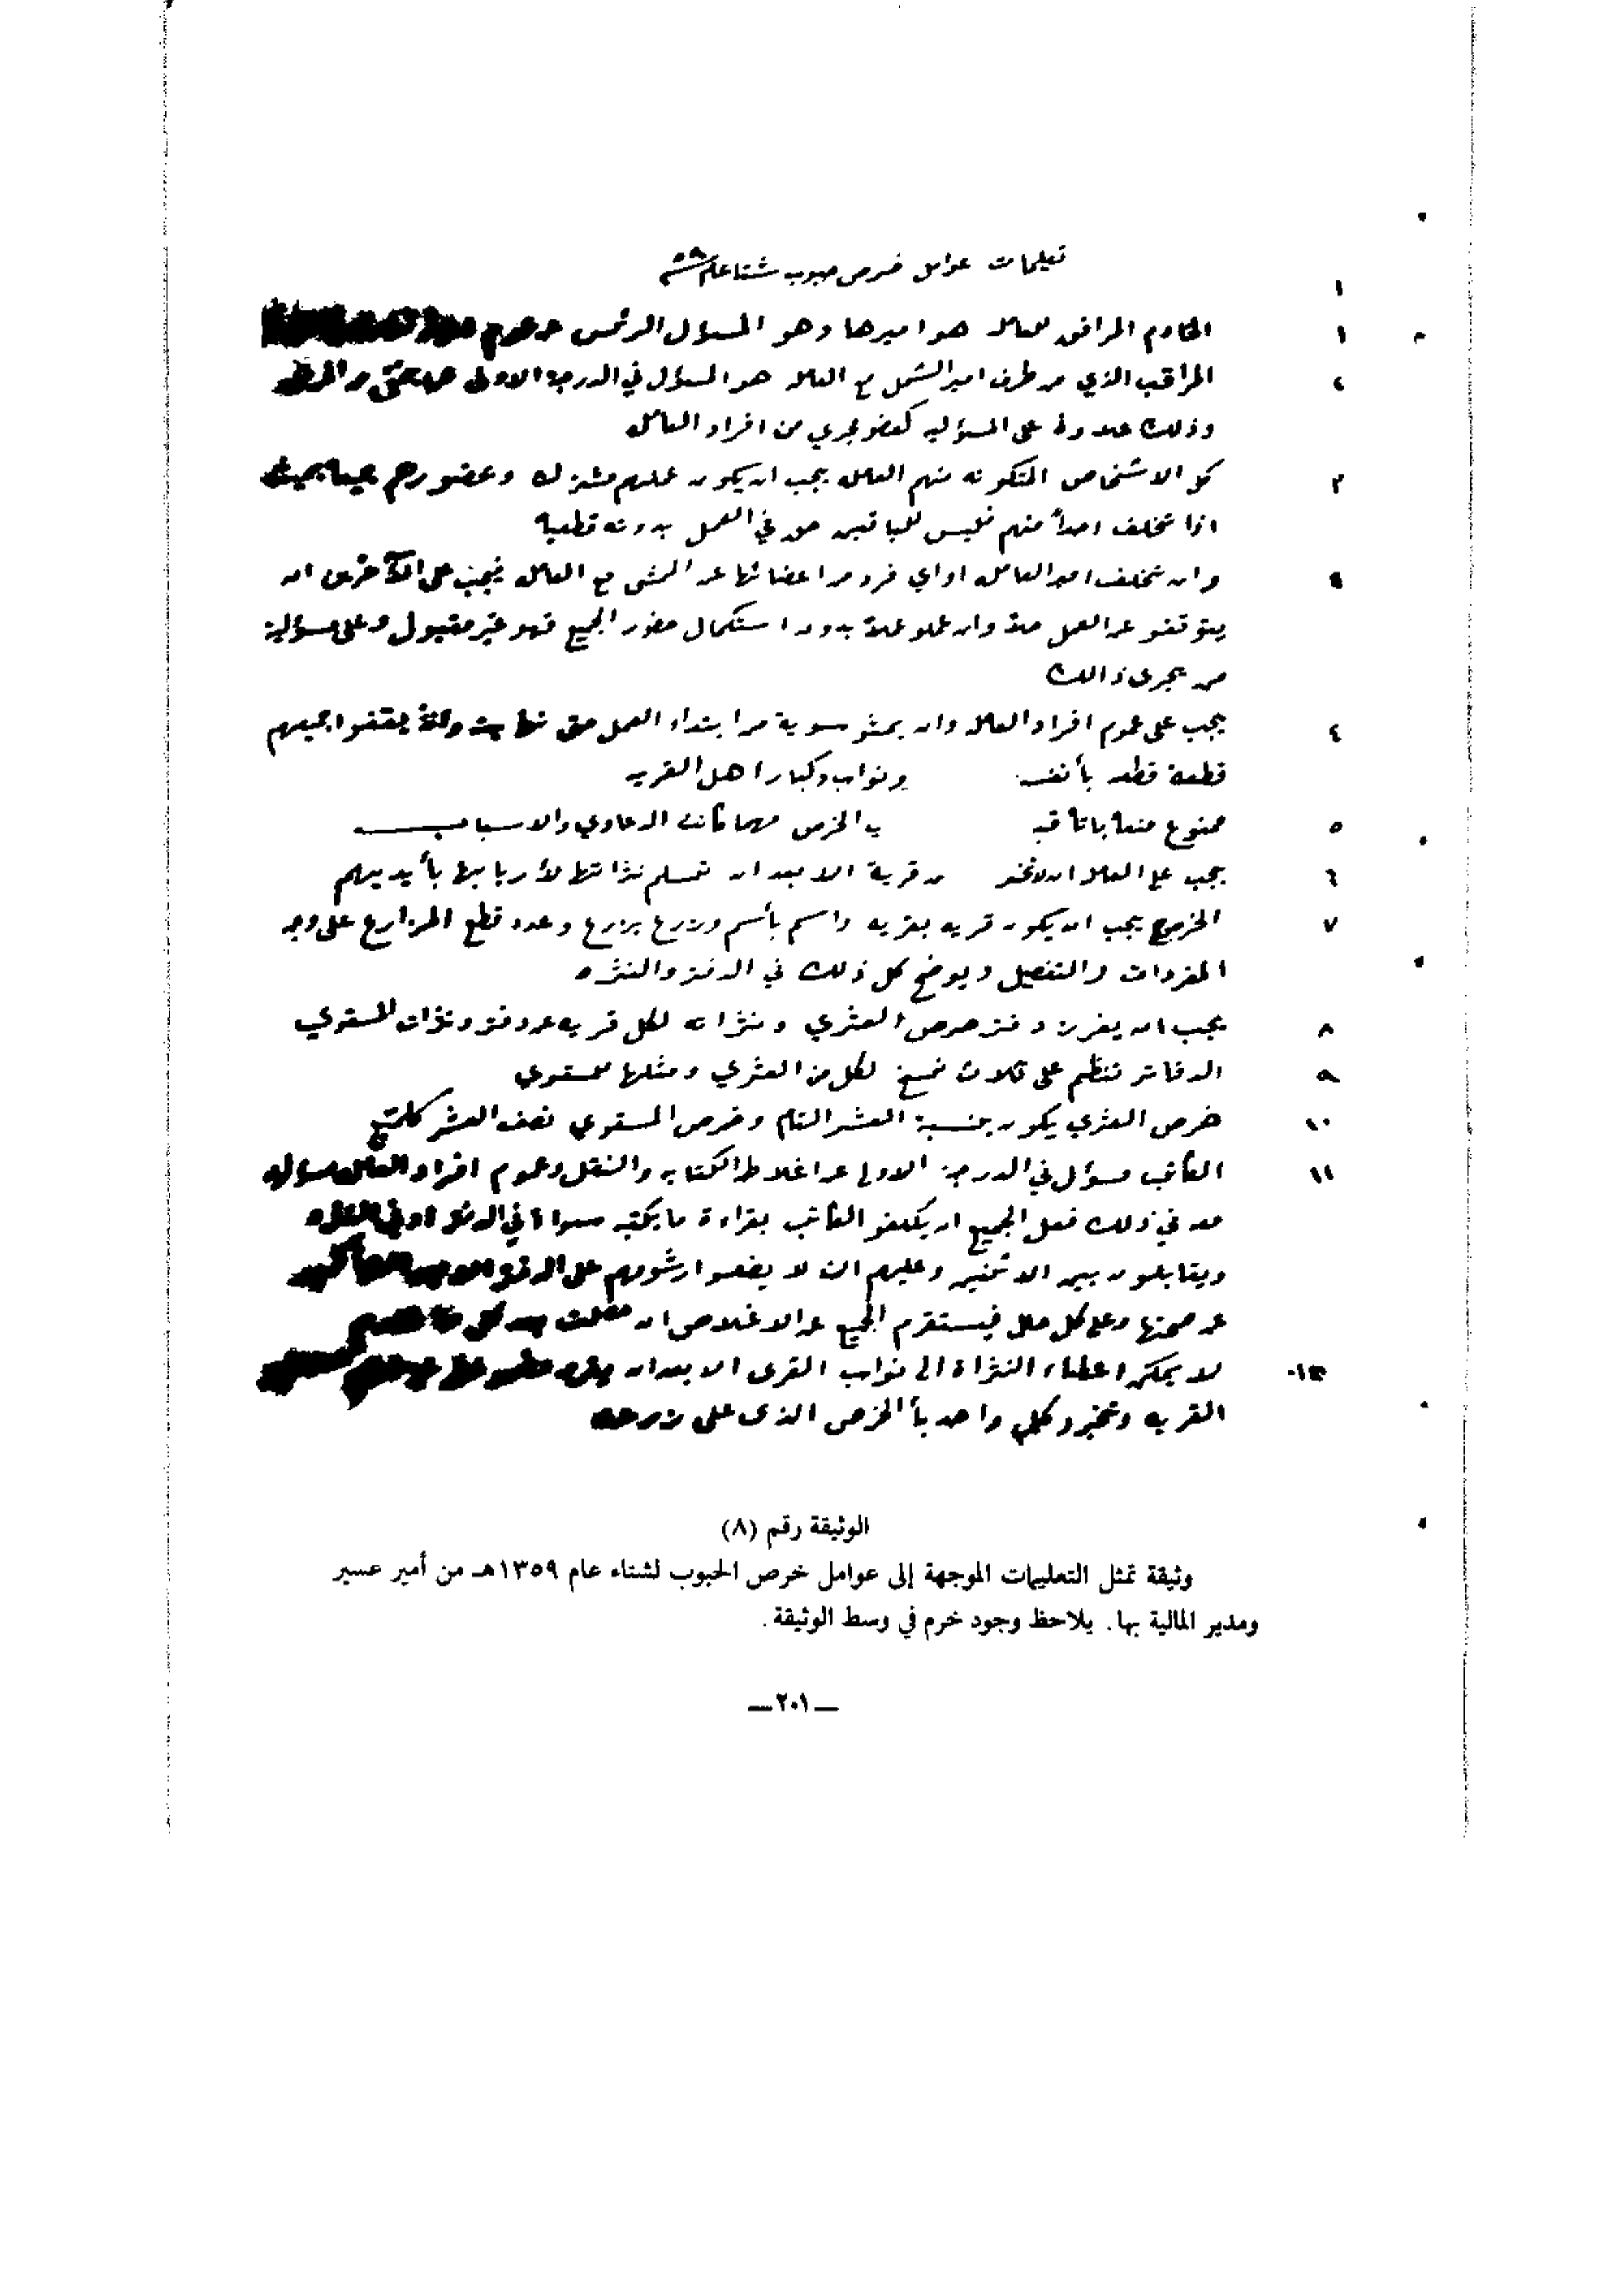 تعليمات عوامل خرص حبوب شتا عام ٥٩
١
١ الخادم المرافق للعامله هو اميرها وهو المسؤل الرئسي عن عموم
٢ المراقب الذي من طرف امير الشمل مع العامله هو المسؤل في الدرجة الاولى
وذلك علاوة على المسؤليه كعضو يجري من افراد العامله
٣ كل الاشخاص المتكونه منهم العامله يجب ان يكون عملهم مشترك وعضو
اذا تخلف احداً منهم فليس للباقين حق في العمل بدونه قطعيا
٤ وان تخلف امير العامله او اي فرد من اعضائها عن المشي مع العامله فيجب على الآخرين ان
يتوقفو عن العمل حالا وان عملو عملاً بدون استكمال حضور الجميع فهو غير مقبول وعلى مسؤلية
من يجرى ذالك
٤ يجب على عموم افراد العامله وان يمشو سوية من ابتداء العمل حتى نهايته وانه يقفوا جميعهم
قطعة قطعه بأنفس ونواب وكبار اهل القريه
٥ ممنوع منعا باتا قب به الخرص مهما كانت الدعاوي والاسباب
٦ يجب على العامله ان لا ن قرية الا بعد ان تسلم نثراتها لأربابها بأيديهم
٧ الخروج يجب ان يكون قريه بقريه واسم بأسم وزرع بزرع وعدد قطع المزارع على وجه
المفردات والتفصيل ويوضح كل ذلك في الدفتر والنثره
٨ يجب ان يفرز دفتر خرص العثري ونثراته لكل قريه عن دفتر ونثرات المسقوي
٩ الدفاتر تنظم على ثلاث نسخ لكل من العثري ومثلها للمسقوي
١٠ خرص العثري يكون بنسبة العشر التام وخرص المسقوي نصف العشر كالمتبع
١١ الكاتب مسؤل في الدرجة الاولى عن اغلاط الكتابه والنقل وعموم افراد العامله مسؤله
معه في ذلك فعلى الجميع ان يكلفو الكاتب بقراءة ما يكتبه سواءا في الدفتر او في النثره
ويتقابلون بين الاثنين وعليهم ان لا يضعوا ارشومهم على الدفتر الا بعد التأكيد
عن صحتها وعلى كل حال فيستقرم الجميع عن الاغلاص ان
١٢ لا يمكن اعطاء النثراة الى نواب القرى الا بعد ان
القريه وتخبرو كلاً واحد بأ الخرص الذى على زرعه
الوثيقة رقم (٨)
وثيقة تمثل التعليمات الموجهة إلى عوامل خرص الحبوب لشتاء عام ١٣٥٩هـ من أمير عسير
ومدير المالية بها. يلاحظ وجود خرم في وسط الوثيقة.
—٢٠١—